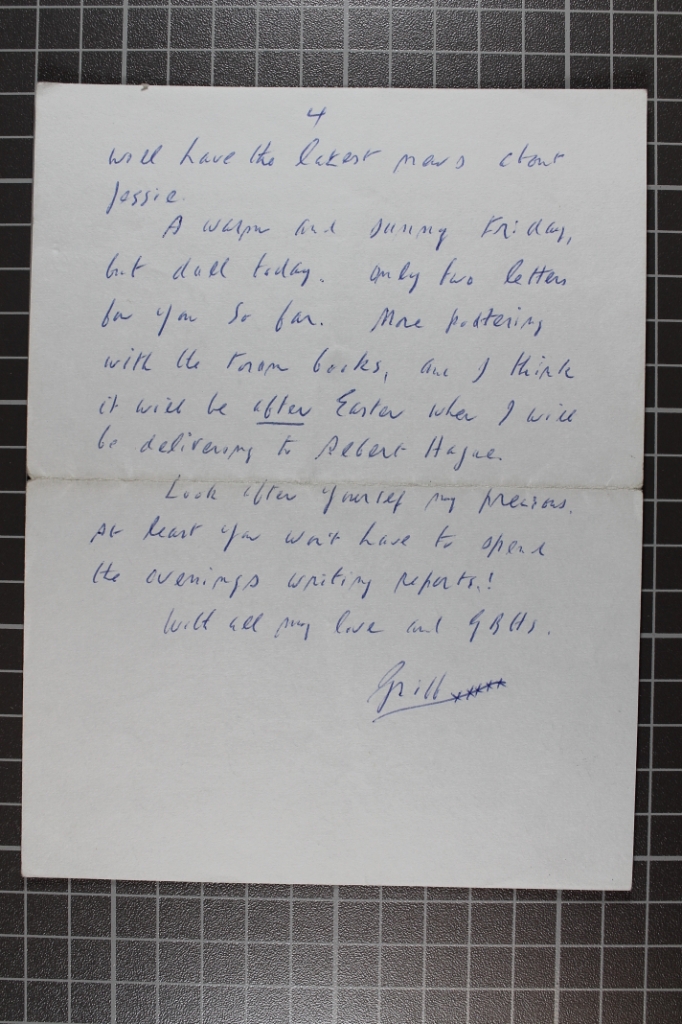 4
will have the latest news about
Jessie.
A warm and sunny Friday,
but dull today. Only two letters
for you so far. More pottering
with the Forum books, and I think
it will be after Easter when I will
be delivering to Albert Hague.
Look after yourself my precious.
At least you won't have to spend
the evenings writing reports.!
With all my love and GBHs.
xxxxx